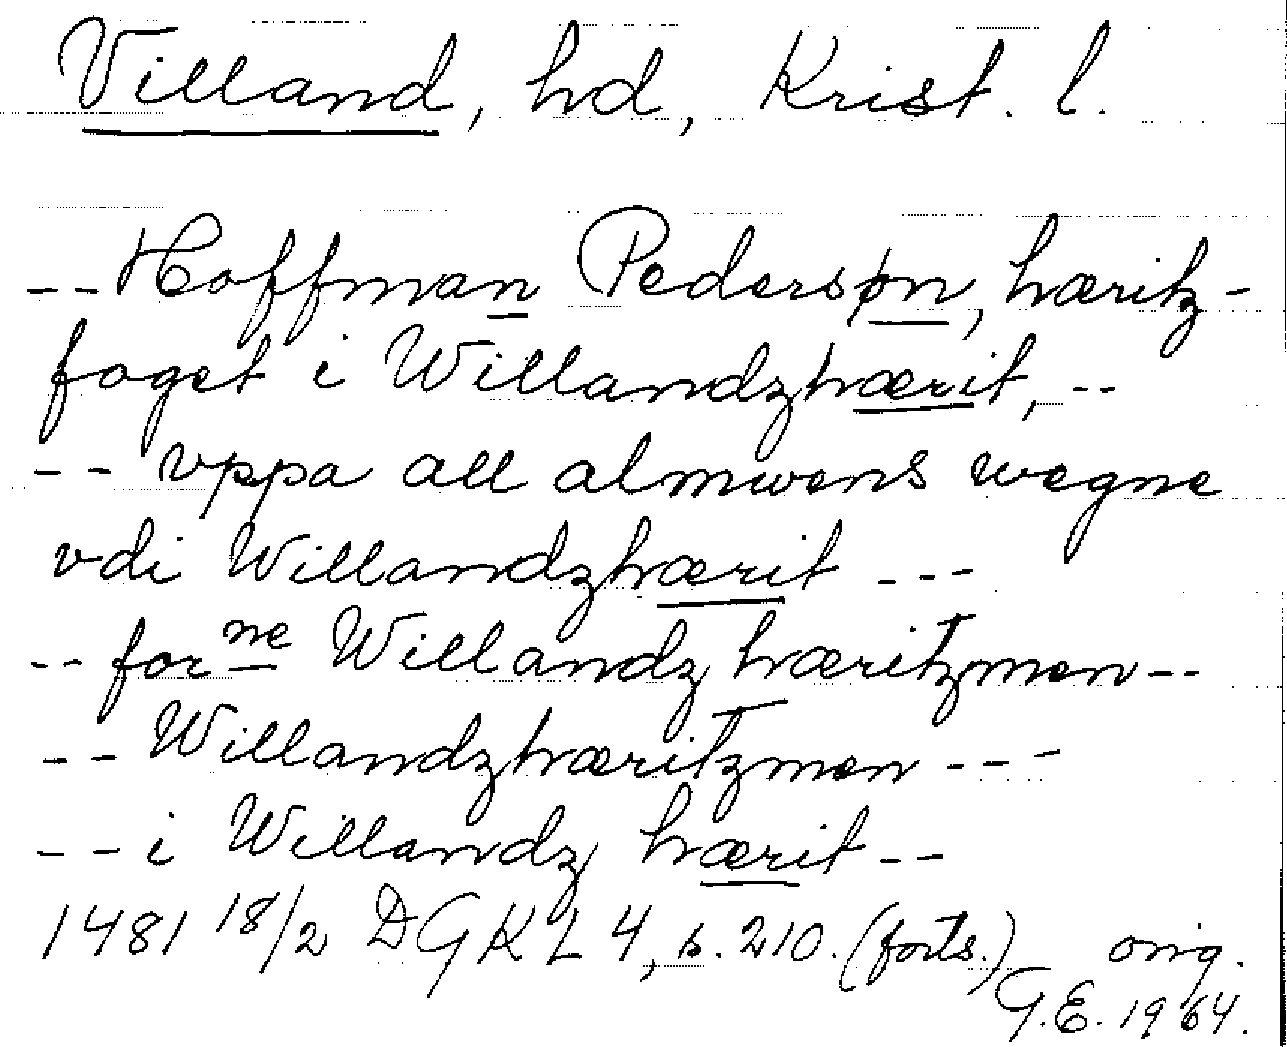 Villand, hd, Krist. l.
-- Hoffman Pedersøn, hæritz-
foget i Willandzhærit, --
-- vppa all almwens wegne
vdi Willandzhærit ---
-- forne Willandz hæritzmen --
-- Willandzhæritzmen ---
-- i Willandz hærit --
1481 18/2 DGKL 4, s. 210. (forts.) orig.
G.E. 1964.